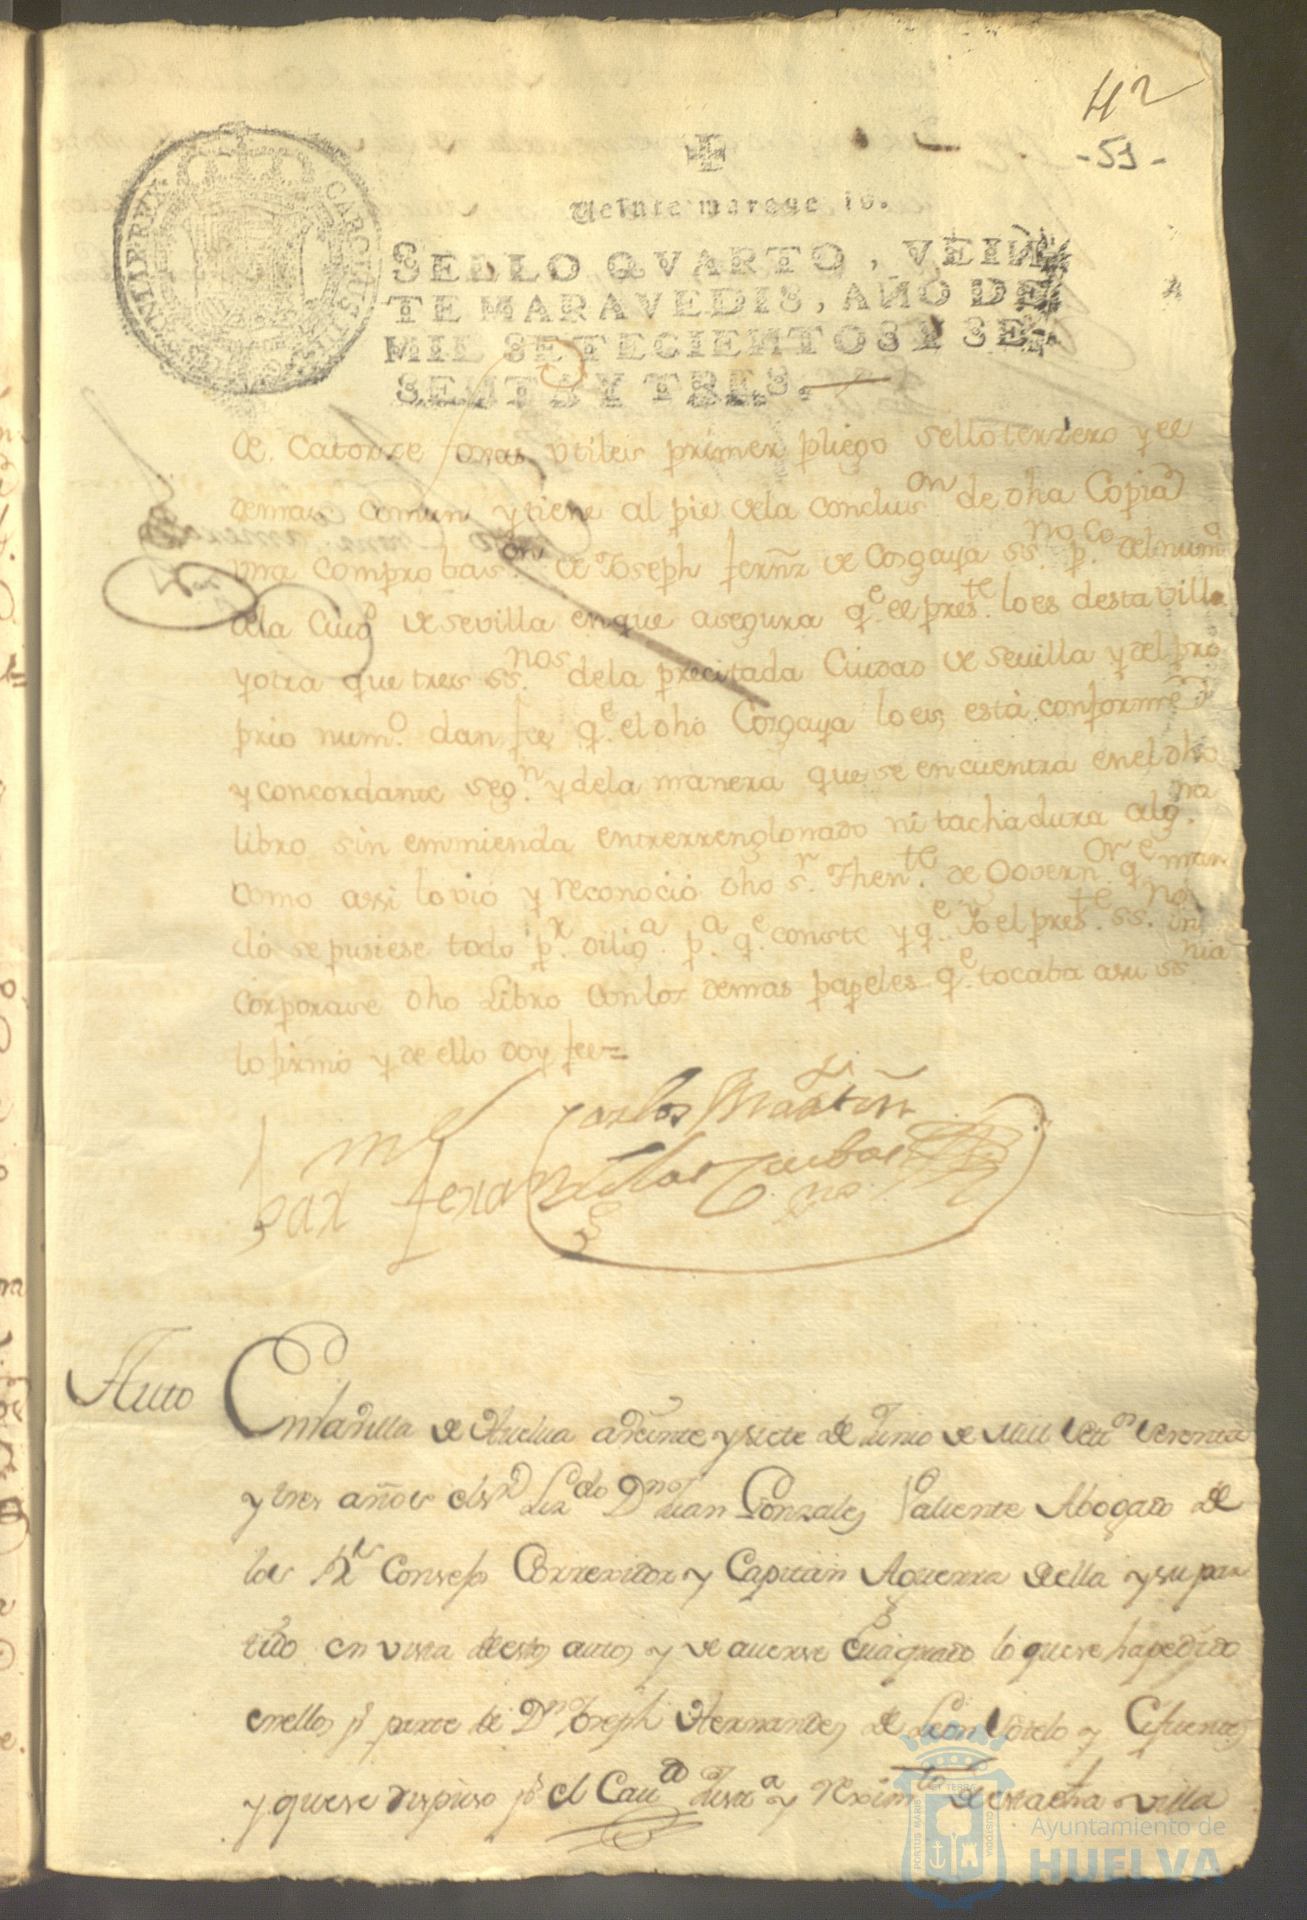 42
-51-
Veinte maraue is.
SELLO QVARTO, VEIN
TE MARAVEDIS, AÑO DE
MIL SETECIENTOS Y SE
SENTA Y TRES.
CAROLUS III
de Catorze foxas vtiles primer pliego sello terzero y el
demas comun y tiene al pie dela conclus.on de dha Copia
una Comprobas.on de Joseph fernz de Corgaya ss.no p.co del num.o
dela Ciud de Sevilla en que asegura q.e el pres.te lo es desta villa
y otra que tres ss.nos dela precitada Ciudad de Sevilla y del pro
prio num.o dan fee q.e el dho Corgaya lo es, está conforme
y concordante seg.n y dela manera que se encuentra en el dho
libro sin emmienda entrerrenglonado ni tachadura alg.na
como assi lo vio y reconoció dho s.r Then.te de Governor. q.e man
dó se pusiese todo p.r dilig.a p.a q.e conste y q.e Yo el pres.te ss.no in
corporase dho Libro con los demas papeles q.e tocaba a su ss.nia
lo firmó y de ello doy fee=
Carlos Martin
Auto En la villa de Huelua a veinte y siete de Junio de Mill Sett.os sesenta
y tres años el s.r Liz.do D.n Juan Gonzales Valiente Abogado de
los R.s Consejos Correxidor y Capitan Aguerra de ella y su par
tido en vista destos autos y de auerse euaquado lo que se ha pedido
en ellos p.r parte de D.n Joseph Hernandes de Leon Sotelo y Cifuentes
y que se dispuso p.r el Cau.do Just.a y Reximi.to de esta dha villa
PORTUS MARIS ET TERRAE CUSTODIA
Ayuntamiento de
HUELVA